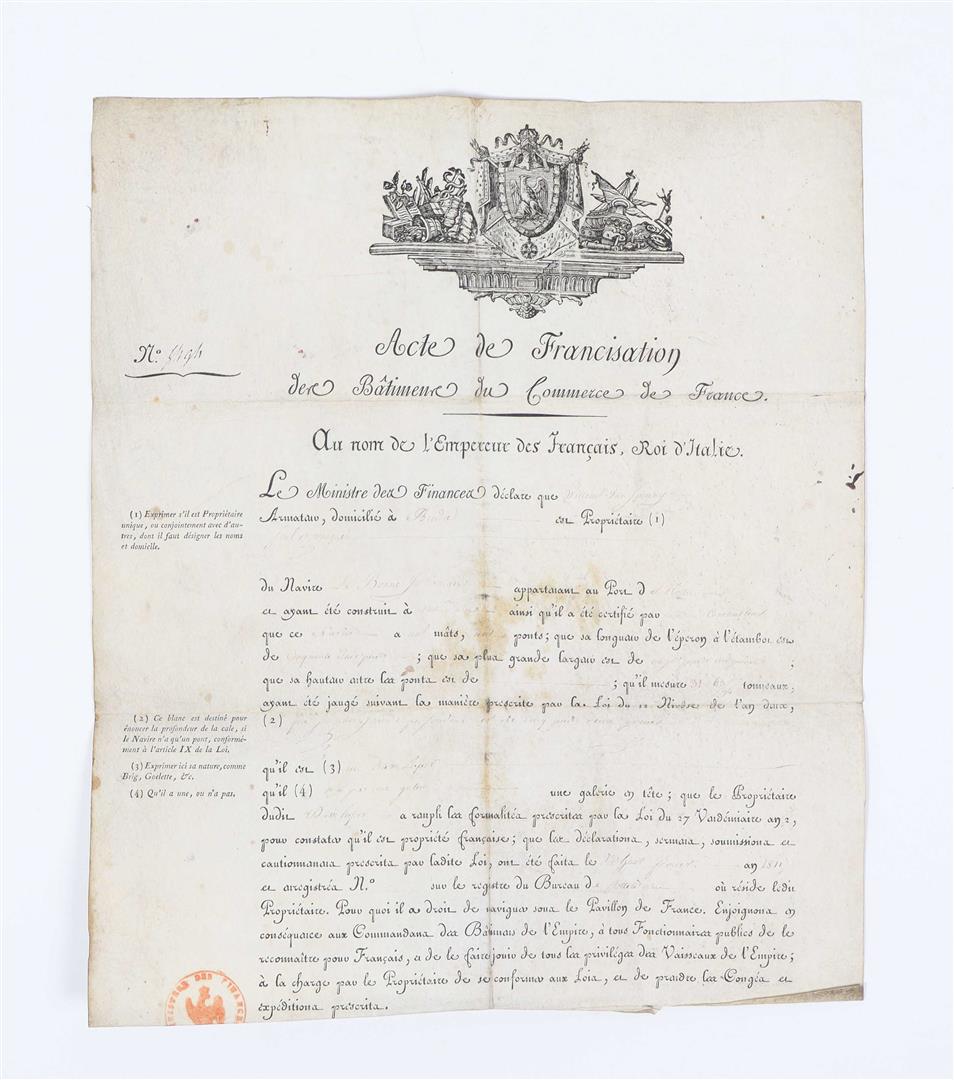 Acte de Francisation
des Bâtimens du Commerce de France.
Nº
Au nom de l'Empereur des Français, Roi d'Italie.
Le Ministre des Finances déclare que
Armateur, domicilié à Breda est Propriétaire (1)
(1) Exprimer s'il est Propriétaire
unique, ou conjointement avec d'au-
tres, dont il faut désigner les noms
et domicile.
du Navire appartenant au Port d
et ayant été construit à ainsi qu'il a été certifié par
que ce Navire a mâts, ponts; que sa longueur de l'éperon à l'étambot est
de ; que sa plus grande largeur est de ;
que sa hauteur entre les ponts est de ; qu'il mesure tonneaux;
ayant été jaugé suivant la manière prescrite par la Loi du 12 Nivôse de l'an deux,
(2)
(2) Ce blanc est destiné pour
énoncer la profondeur de la cale, si
le Navire n'a qu'un pont, conformé-
ment à l'article IX de la Loi.
(3) Exprimer ici sa nature, comme
Brig, Goelette, &c.
(4) Qu'il a une, ou n'a pas.
qu'il est (3)
qu'il (4) une galerie en tête; que le Propriétaire
dudit a rempli les formalités prescrites par la Loi du 27 Vendémiaire an 2,
pour constater qu'il est propriété française; que les déclarations, sermens, soumissions et
cautionnemens prescrits par ladite Loi, ont été faits le an 1811
et enregistrés N.º sur le registre du Bureau d où réside ledit
Propriétaire. Pour quoi il a droit de naviguer sous le Pavillon de France. Enjoignons en
conséquence aux Commandans des Bâtimens de l'Empire, à tous Fonctionnaires publics de le
reconnaître pour Français, et de le faire jouir de tous les privilèges des Vaisseaux de l'Empire;
à la charge par le Propriétaire de se conformer aux Lois, et de prendre les Congés et
expéditions prescrits.
MINISTRE DES FINANCE